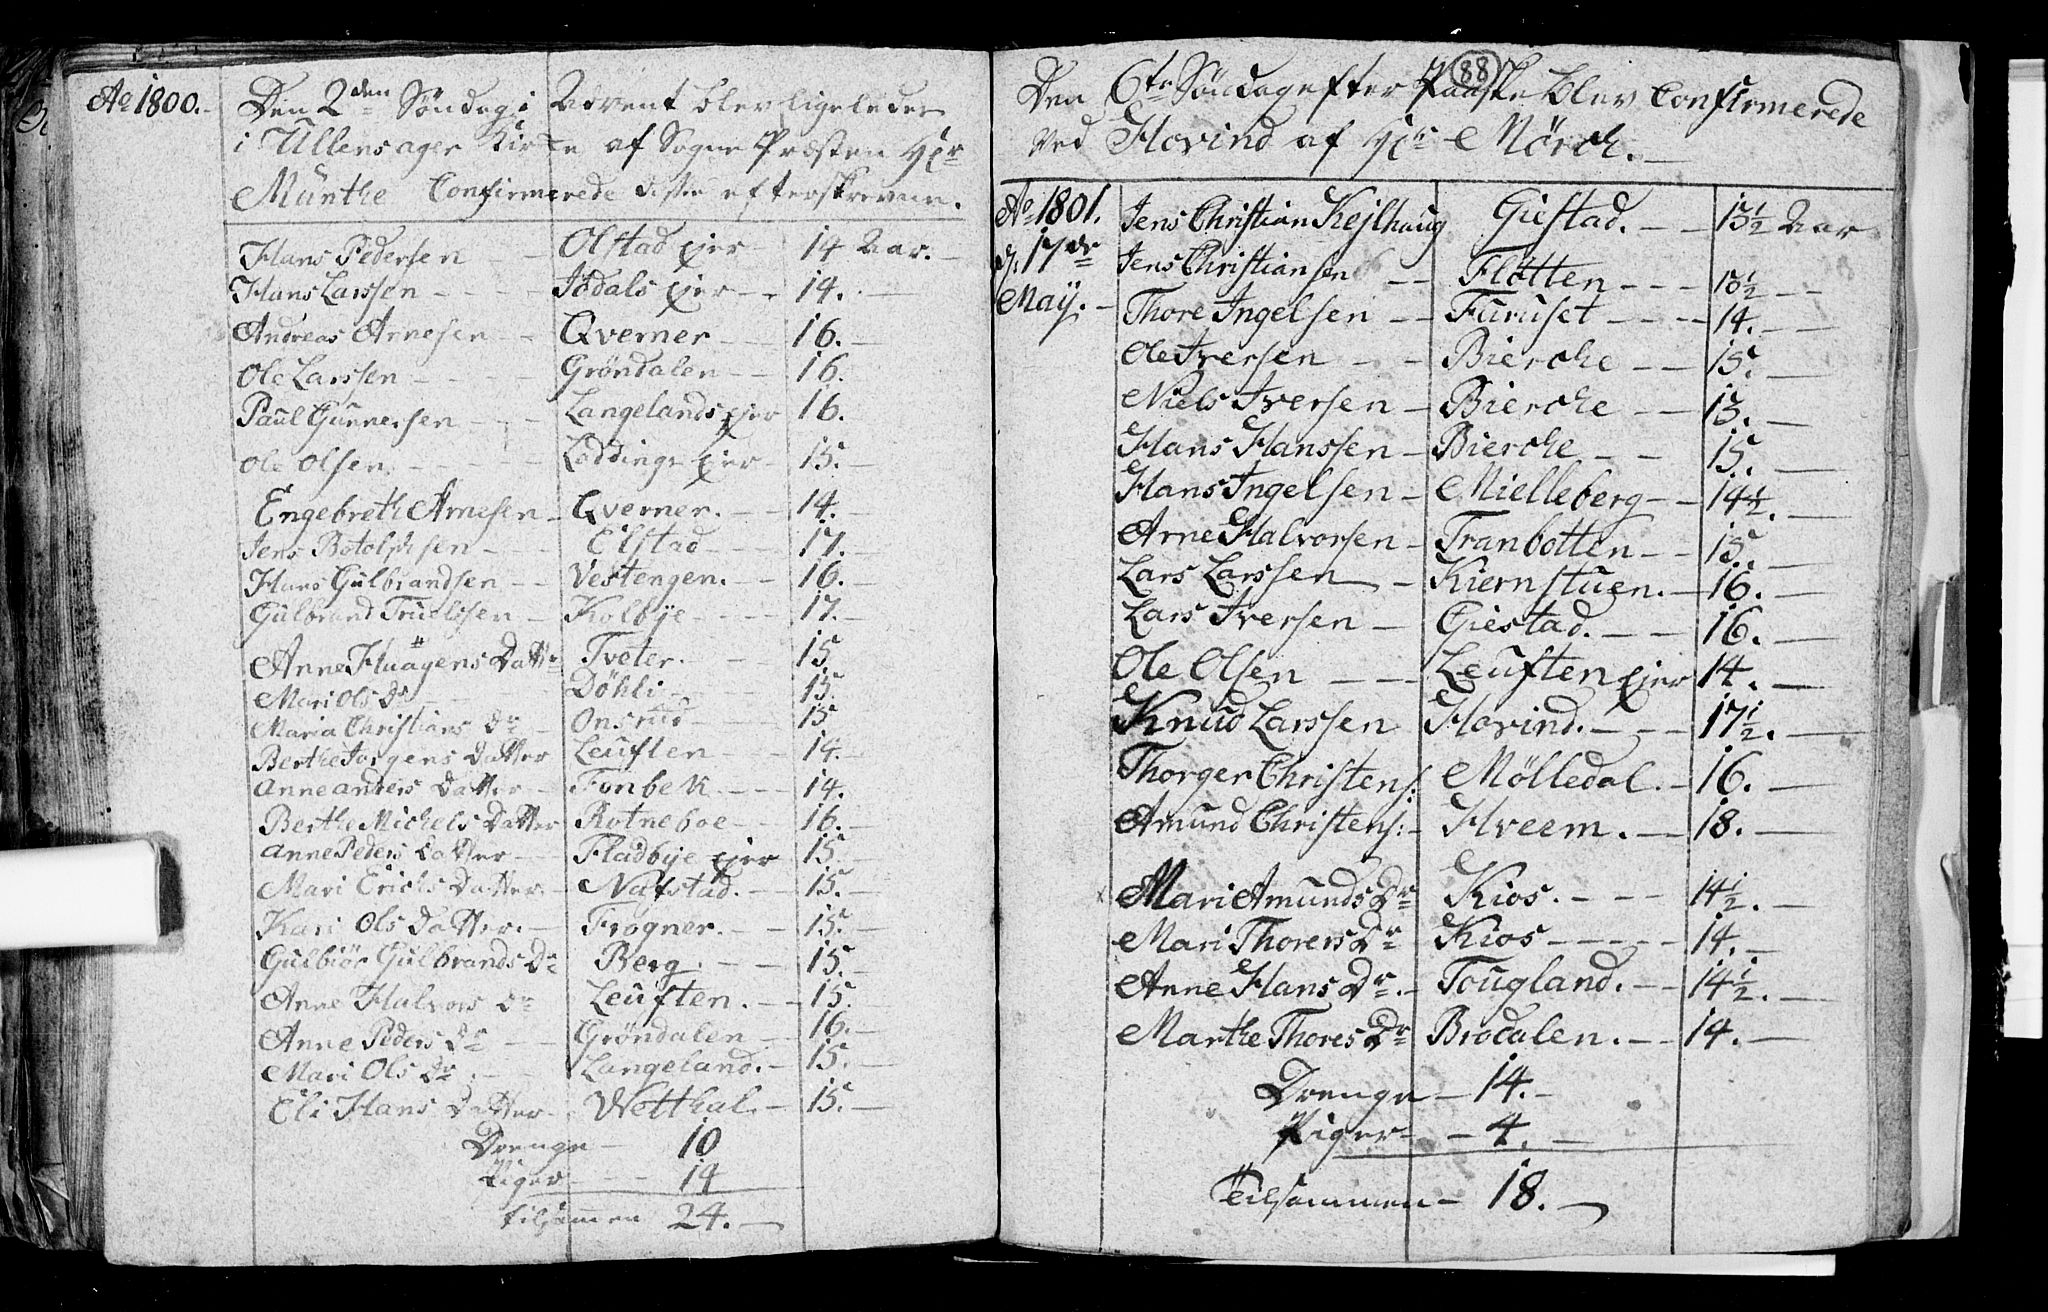 Ao 1800.
Den 2den Søndag i Advent blev ligeledes
i Ullensager Kirke af Sogne Præsten Hr
Münthe Confirmerede disse efterskrevne.
Hans Pedersen - - Olstad ejer - 14 Aar.
Hans Larssen - - - Jødals ejer - 14. -
Andreas Arnesen - - Qverner - - 16. -
Ole Larssen - - - Grøndalen - - 16. -
Paul Gunnersen - - Langelands ejer 16.
Ole Olsen - - - - Løddings ejer - 15. -
Engebreth Arnesen - Qverner. - - 14. -
Jens Botolphsen - - Elstad - - - 17. -
Hans Gulbrandsen - - Vestengen. - - 16. -
Gulbrand Truelssen - Kolbye - - - 17. -
Anne Haagens Datter Tveter. - - - 15
Mari Ols Dr - - Døhli - - - 15.
Maria Christians Dr - Onsrud - - - 15
Berthe Jørgens Datter Leuften - - - 14. -
Anne anders Datter - Fonbek - - - 14.
Berthe Michels Datter Rotneboe - - 16. -
Anne Peders Datter - - Fladbye ejer 15. -
Mari Erichs Datter - Nafstad. - - 15. -
Kari Ols Datter. - Frogner. - - 15. -
Gulbiør Gulbrands Dr Berg. - - 15. -
Anne Halvors Dr Leuften. - - 15.
Anne Peders Dr - - Grøndalen - 16. -
Mari Ols Dr. - Langeland. - 15. -
Eli Hans Datter - Wetthal. - 15. -
Drenge - 10
Piger - - - 14
tilsammen 24. -
88
Den 6te Søndag efter Paaske blev Confirmerede
ved Hovind af Hr Mørch. -
Ao 1801. Jens Christian Kejlhaug Giestad. - - 15½ Aar
d. 17de Jens Christiansen - - Flatten - - - 15½ - -
May. - Thore Ingelsen - - Furuset - - - - 14. -
Ole Iversen - - Bierche - - 15. -
Niels Iversen - Bierche - - 15. -
Hans Hanssen - Bierche - - 15. -
Hans Ingelsen - Mielleberg - - 14½. -
Arne Halvorsen - Tranbotten - - 15. -
Lars Larssen - - Kiernstuen. - 16. -
Lars Iversen - Giestad. - - 16. -
Ole Olsen - - - Leuften ejer 14. -
Knud Larssen Hovind. - - - 17½. -
Thorger Christens: Mølledal. - 16. -
Amund Christens: - Hveem. - - 18. -
Mari Amunds Dr Kios. - - - 14½. -
Mari Thorers Dr Kios - - - - - 14. -
Anne Hans Dr. - Tougland. - - 14½. -
Marthe Thores Dr Brodalen. - - 14. -
Drenge - 14. -
Piger - - 4. -
Tilsammen - 18. -